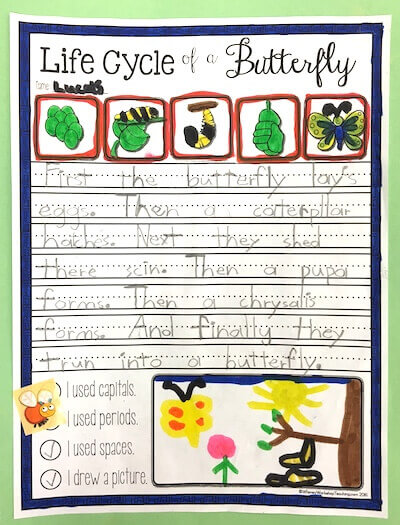 Life Cycle of a Butterfly
Name: Lucas
First the butterfly lay's
eggs. Then a caterpllar
haches. Next they shed
there scin. Then a pupa
forms. Then a chrysalis
forms. And finally they
trun into a butterfly.
I used capitals.
I used periods.
I used spaces.
I drew a picture.